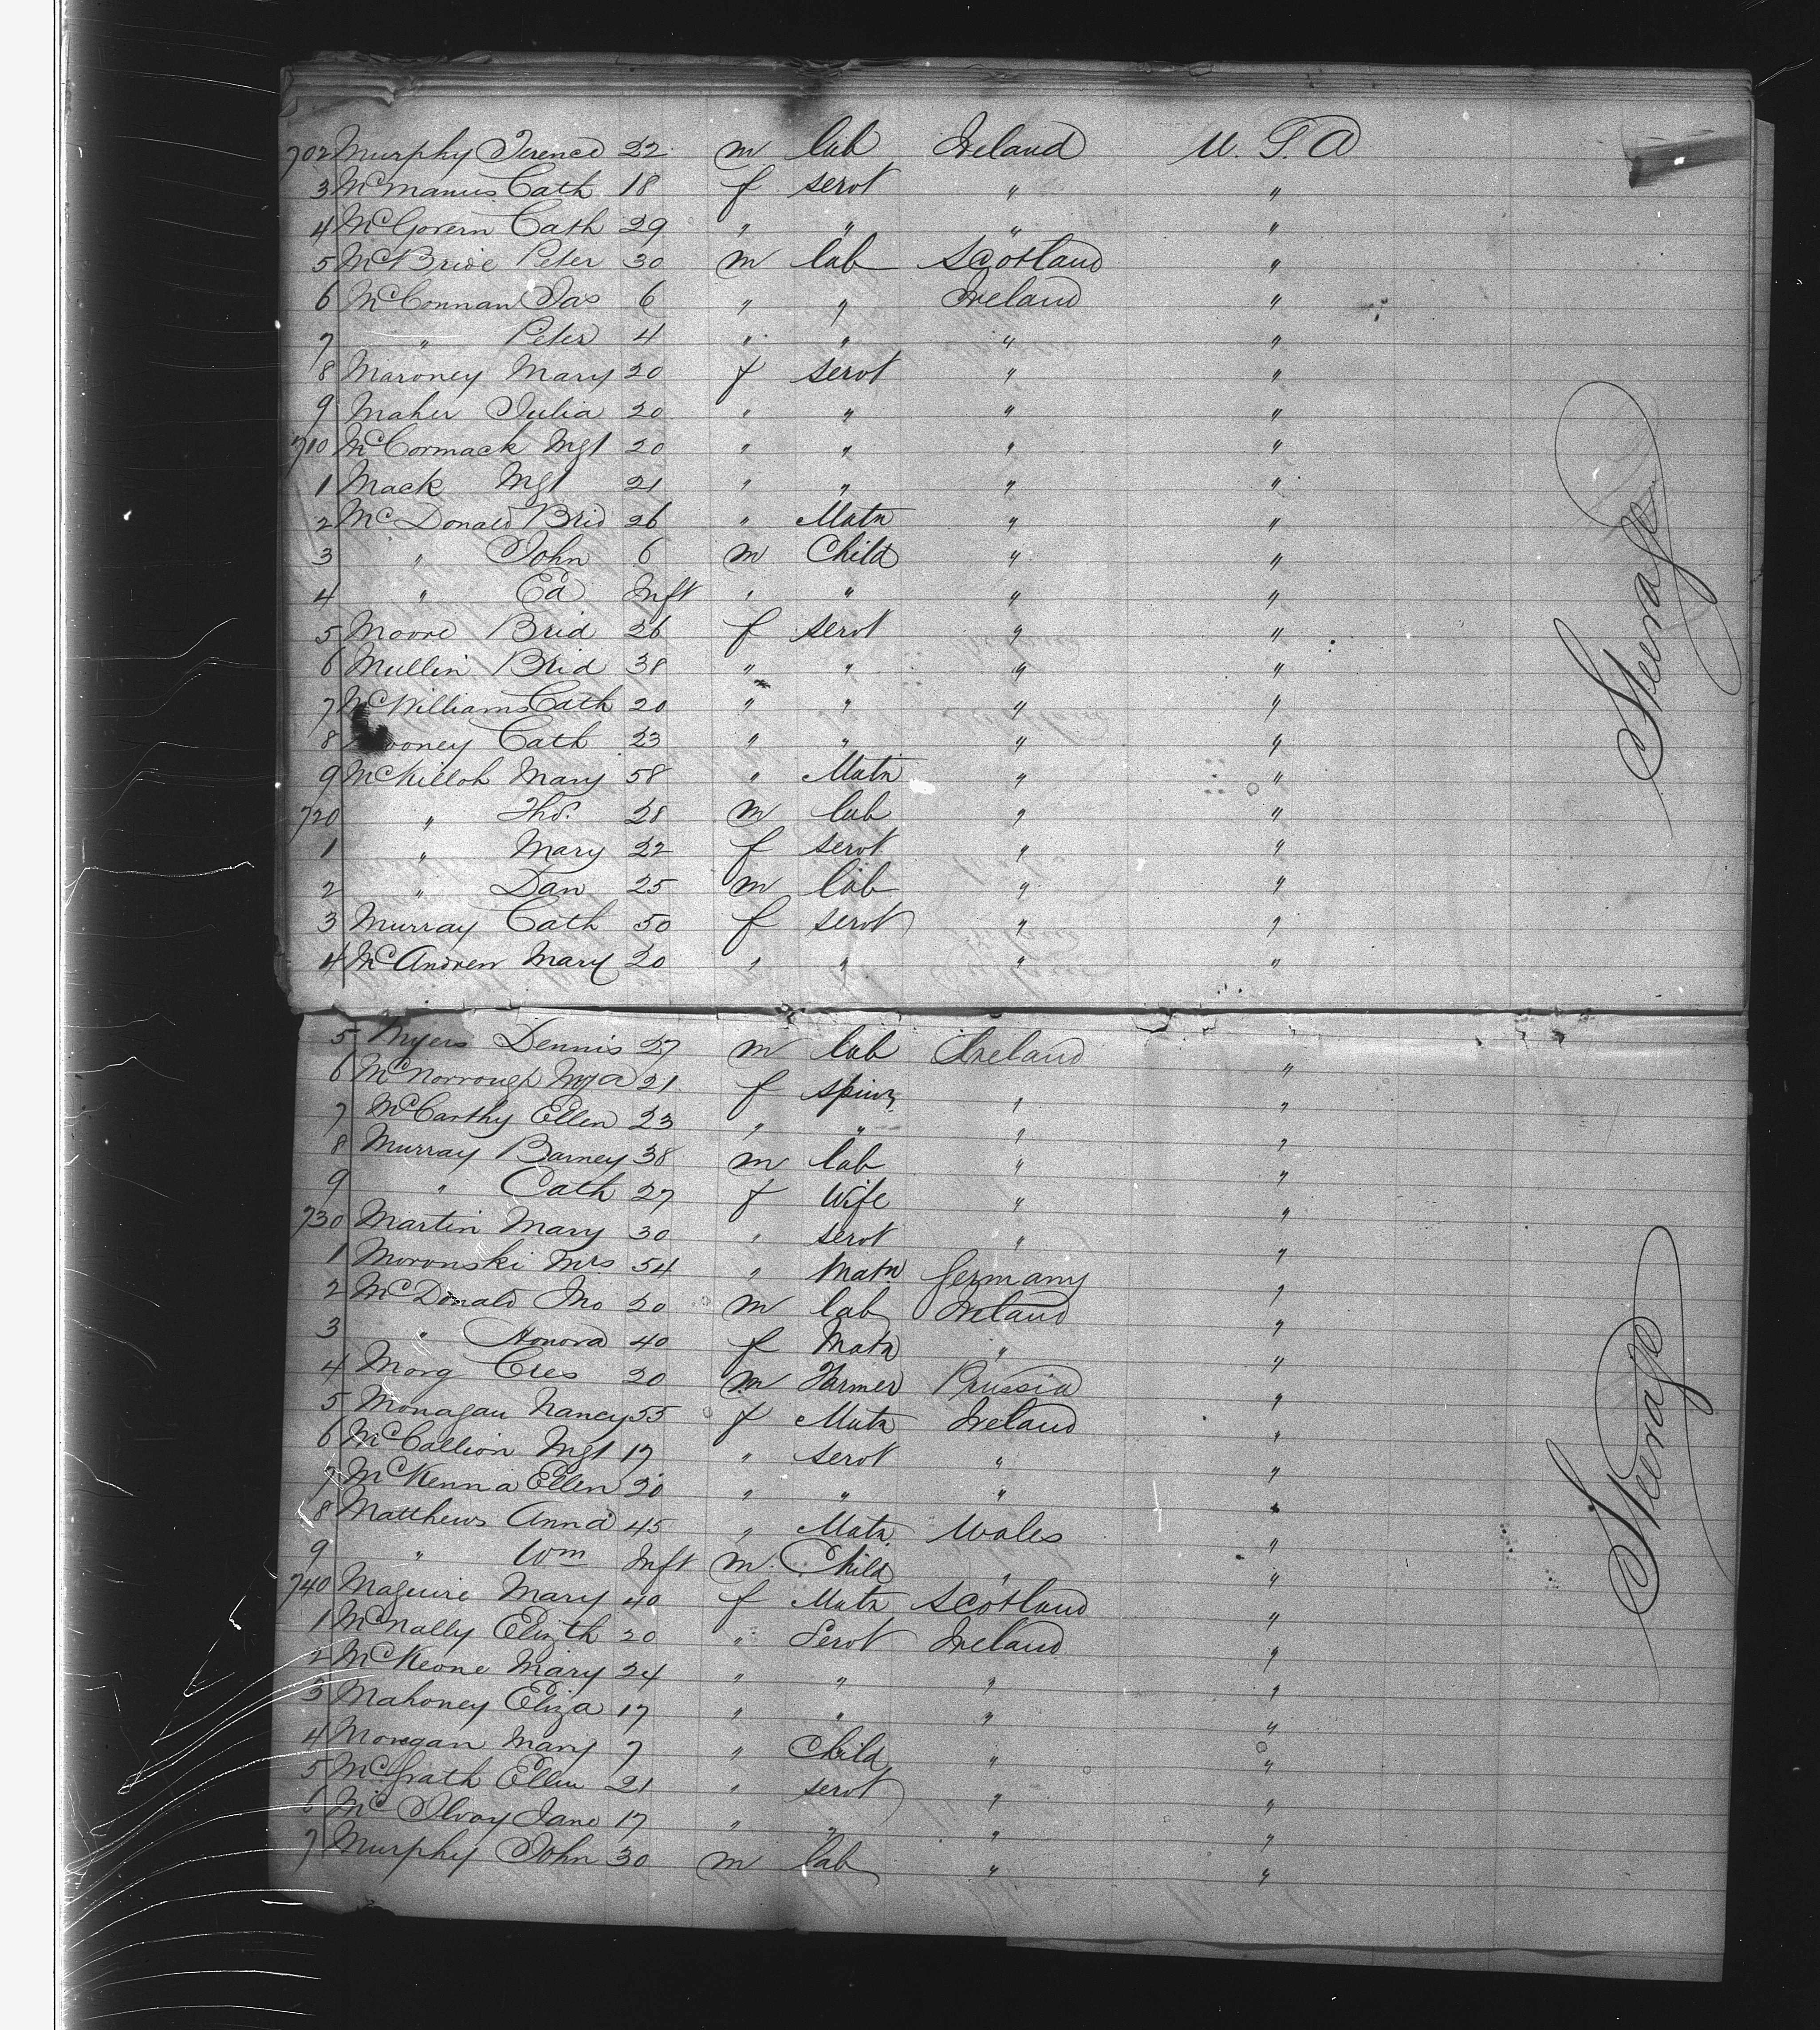 702 Murphy Terence 22 m lab Ireland U.S.A
3 McManus Cath 18 f servt " "
4 McGovern Cath 29 " " " "
5 McBride Peter 30 m lab Scotland "
6 McConnan Jas 6 " " Ireland "
7 " Peter 4 " " " "
8 Maroney Mary 20 f servt " "
9 Maher Julia 20 " " " "
710 McCormack Mgt 20 " " " "
1 Mack Mgt 21 " " " "
2 McDonald Brid 26 " Matn " "
3 " John 6 m Child " "
4 " Ed Inft " " " "
5 Moore Brid 26 f servt " "
6 Mullin Brid 38 " " " "
7 McWilliams Cath 20 " " " "
8 Mooney Cath 23 " " " "
9 McKilloh Mary 58 " Matn " "
720 " Thos. 28 m lab " "
1 " Mary 22 f servt " "
2 " Dan 25 m lab " "
3 Murray Cath 50 f servt " "
4 McAndrew Mary 20 " " " "
Steerage
5 Myers Dennis 27 m lab Ireland "
6 McNorrough 21 f spinr " "
7 McCarthy Ellen 23 " " " "
8 Murray Barney 38 m lab " "
9 " Cath 27 f Wife " "
730 Martin Mary 30 " servt " "
1 Moronski Mrs 54 " Matn Germany "
2 McDonald Jno 20 m lab Ireland "
3 " Honora 40 f Matn " "
4 Morg 20 m Farmer Prussia "
5 Monagan Nancy 55 f Matn Ireland "
6 McCallion Mgt 17 " servt " "
7 McKenna Ellen 20 " " " "
8 Matthews Anna 45 " Matn Wales "
9 " Wm Inft m Child " "
740 Maguire Mary 40 f Matn Scotland "
1 McNally Elizth 20 " Servt Ireland "
2 McKeone Mary 24 " " " "
3 Mahoney Eliza 17 " " " "
4 Morgan Mary 7 " Child " "
5 McGrath Ellen 21 " servt " "
6 McIlvoy Jane 17 " " " "
7 Murphy John 30 m lab " "
Steerage